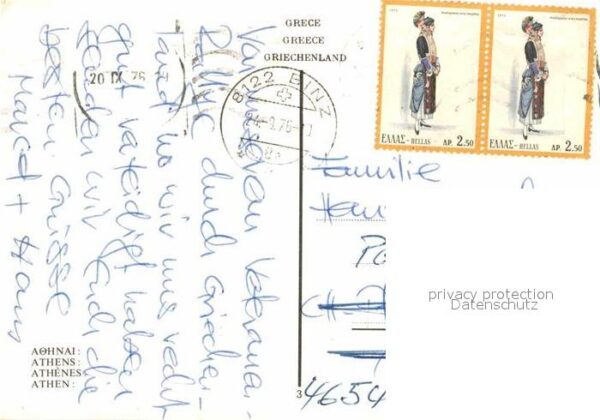 GRECE
GREECE
GRIECHENLAND
20 IX. 76
8122 BINZ
-9.76-
ΕΛΛΑΣ-HELLAS ΔΡ. 2.50
ΕΛΛΑΣ-HELLAS ΔΡ. 2.50
Von unserer Veteranen-
durch Griechen-
land wo wir uns recht
gut verteidigt haben
senden wir Euch die
besten Grüsse
Marcel + Hans
Familie
privacy protection
Datenschutz
4654
ΑΘΗΝΑΙ:
ATHENS:
ATHÈNES:
ATHEN:
3